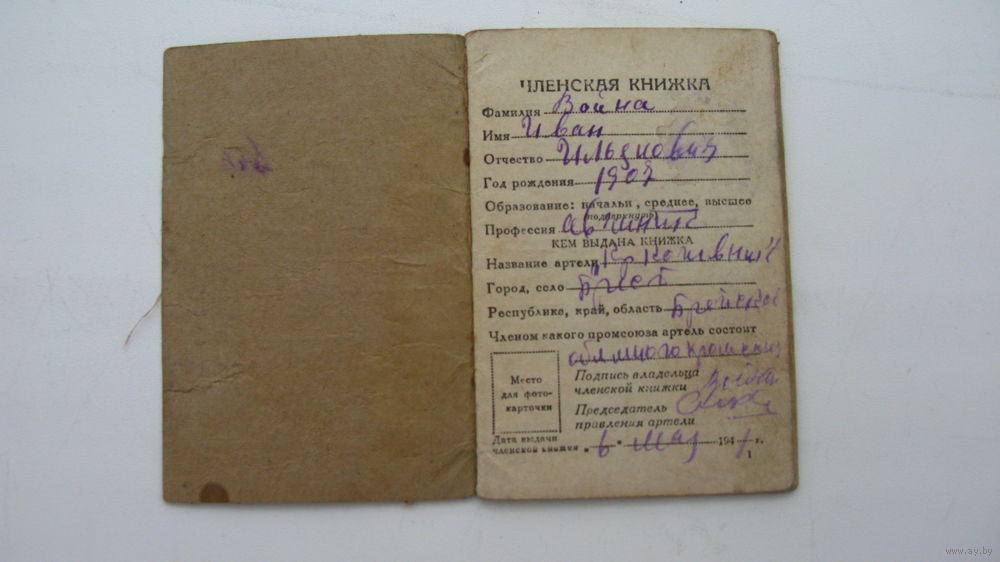 ЧЛЕНСКАЯ КНИЖКА
Фамилия Война
Имя Иван
Отчество
Год рождения 1907
Образование: начальн , среднее, высшее
(подчеркнуть)
Профессия
КЕМ ВЫДАНА КНИЖКА
Название артели
Город, село Брест
Республика, край, область Брестской
Членом какого промсоюза артель состоит
Место
для фото-
карточки
Подпись владельца
членской книжки
Председатель
правления артели
Дата выдачи
членской книжки " 6 " мая 194 г.
1
www.ay.by